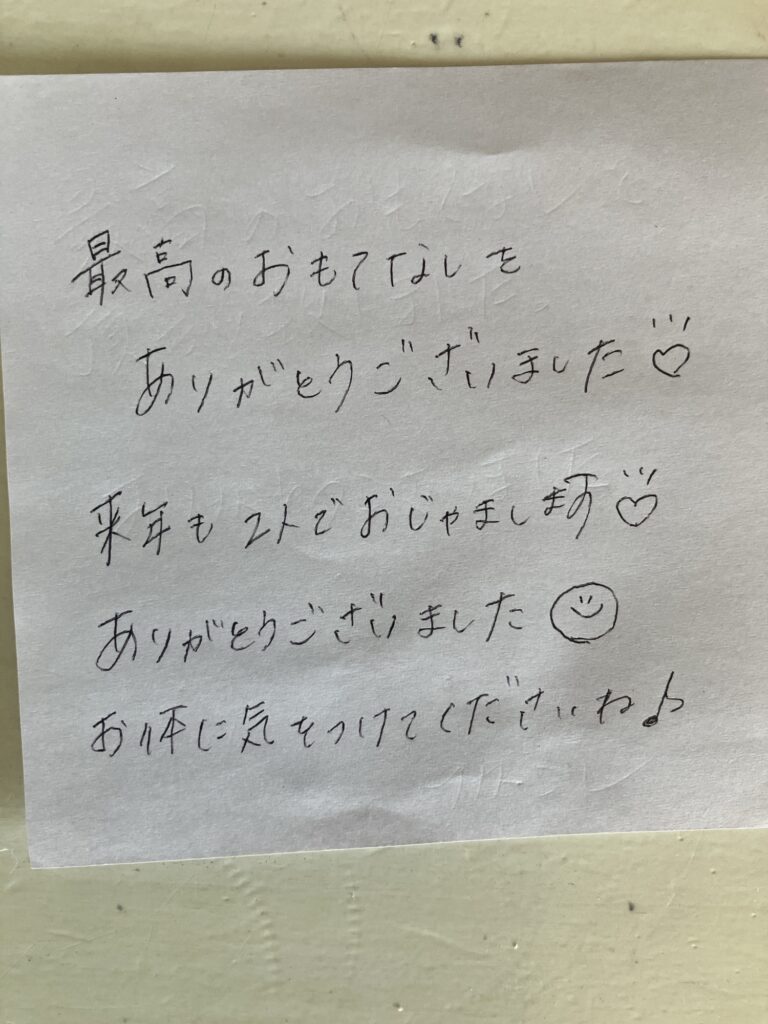 最高のおもてなしを
ありがとうございました♡
来年も2人でおじゃまします♡
ありがとうございました☺
お体に気をつけてくださいね♪